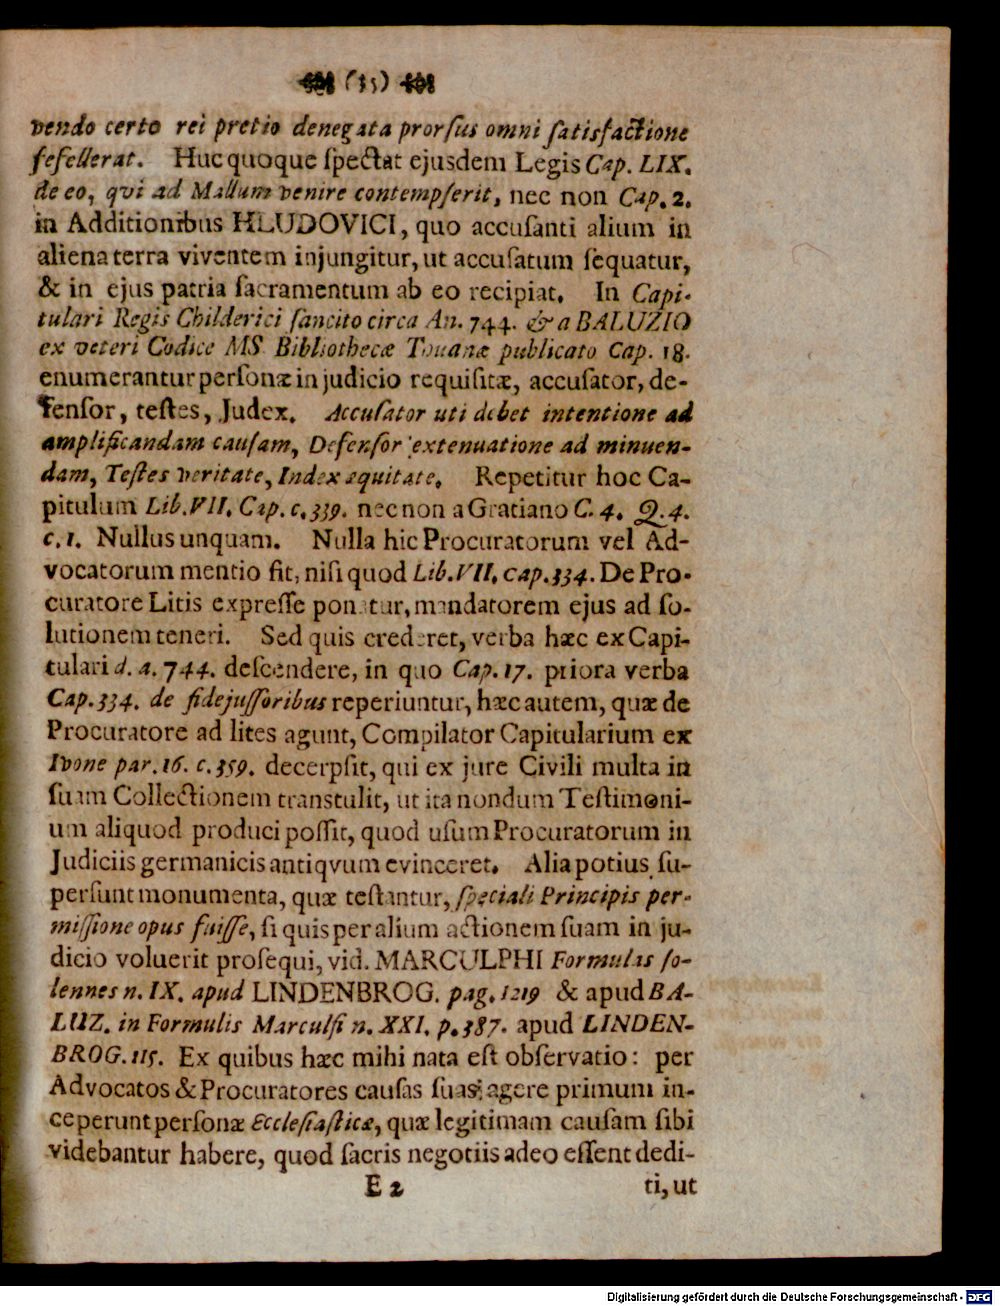 (35)
vendo certo rei pretio denegata prorſus omni ſatisfactione
fefellerat. Huc quoque ſpectat ejusdem Legis Cap. LIX.
de eo, qvi ad Mallum venire contempſerit, nec non Cap. 2.
in Additionibus HLUDOVICI, quo accuſanti alium in
aliena terra viventem injungitur, ut accuſatum ſequatur,
& in ejus patria ſacramentum ab eo recipiat. In Capi-
tulari Regis Childerici ſancito circa An. 744. & a BALUZIO
ex veteri Codice MS. Bibliothecæ Tuanæ publicato Cap. 18.
enumerantur perſonæ in judicio requiſitæ, accuſator, de-
fenſor, teſtes, Judex. Accuſator uti debet intentione ad
amplificandam cauſam, Defenſor extenuatione ad minuen-
dam, Teſtes veritate, Index æquitate. Repetitur hoc Ca-
pitulum Lib. VII. Cap. c. 339. nec non a Gratiano C. 4. Q. 4.
c. 1. Nullus unquam. Nulla hic Procuratorum vel Ad-
vocatorum mentio fit, niſi quod Lib. VII. cap. 334. De Pro-
curatore Litis expreſſe ponatur, mandatorem ejus ad ſo-
lutionem teneri. Sed quis crederet, verba hæc ex Capi-
tulari d. a. 744. deſcendere, in quo Cap. 17. priora verba
Cap. 334. de fidejuſſoribus reperiuntur, hæc autem, quæ de
Procuratore ad lites agunt, Compilator Capitularium ex
Ivone par. 16. c. 359. decerpſit, qui ex jure Civili multa in
ſuam Collectionem transtulit, ut ita nondum Teſtimoni-
um aliquod produci poſſit, quod uſum Procuratorum in
Judiciis germanicis antiqvum evinceret. Alia potius ſu-
perſunt monumenta, quæ teſtantur, ſpeciali Principis per-
miſſione opus fuiſſe, ſi quis per alium actionem ſuam in ju-
dicio voluerit proſequi, vid. MARCULPHI Formulas ſo-
lennes n. IX. apud LINDENBROG. pag. 1219 & apud BA-
LUZ. in Formulis Marculfi n. XXI. p. 387. apud LINDEN-
BROG. 115. Ex quibus hæc mihi nata eſt obſervatio: per
Advocatos & Procuratores cauſas ſuas agere primum in-
ceperunt perſonæ Eccleſiaſticæ, quæ legitimam cauſam ſibi
videbantur habere, quod ſacris negotiis adeo eſſent dedi-
E 2 ti, ut
Digitalisierung gefördert durch die Deutsche Forschungsgemeinschaft - DFG